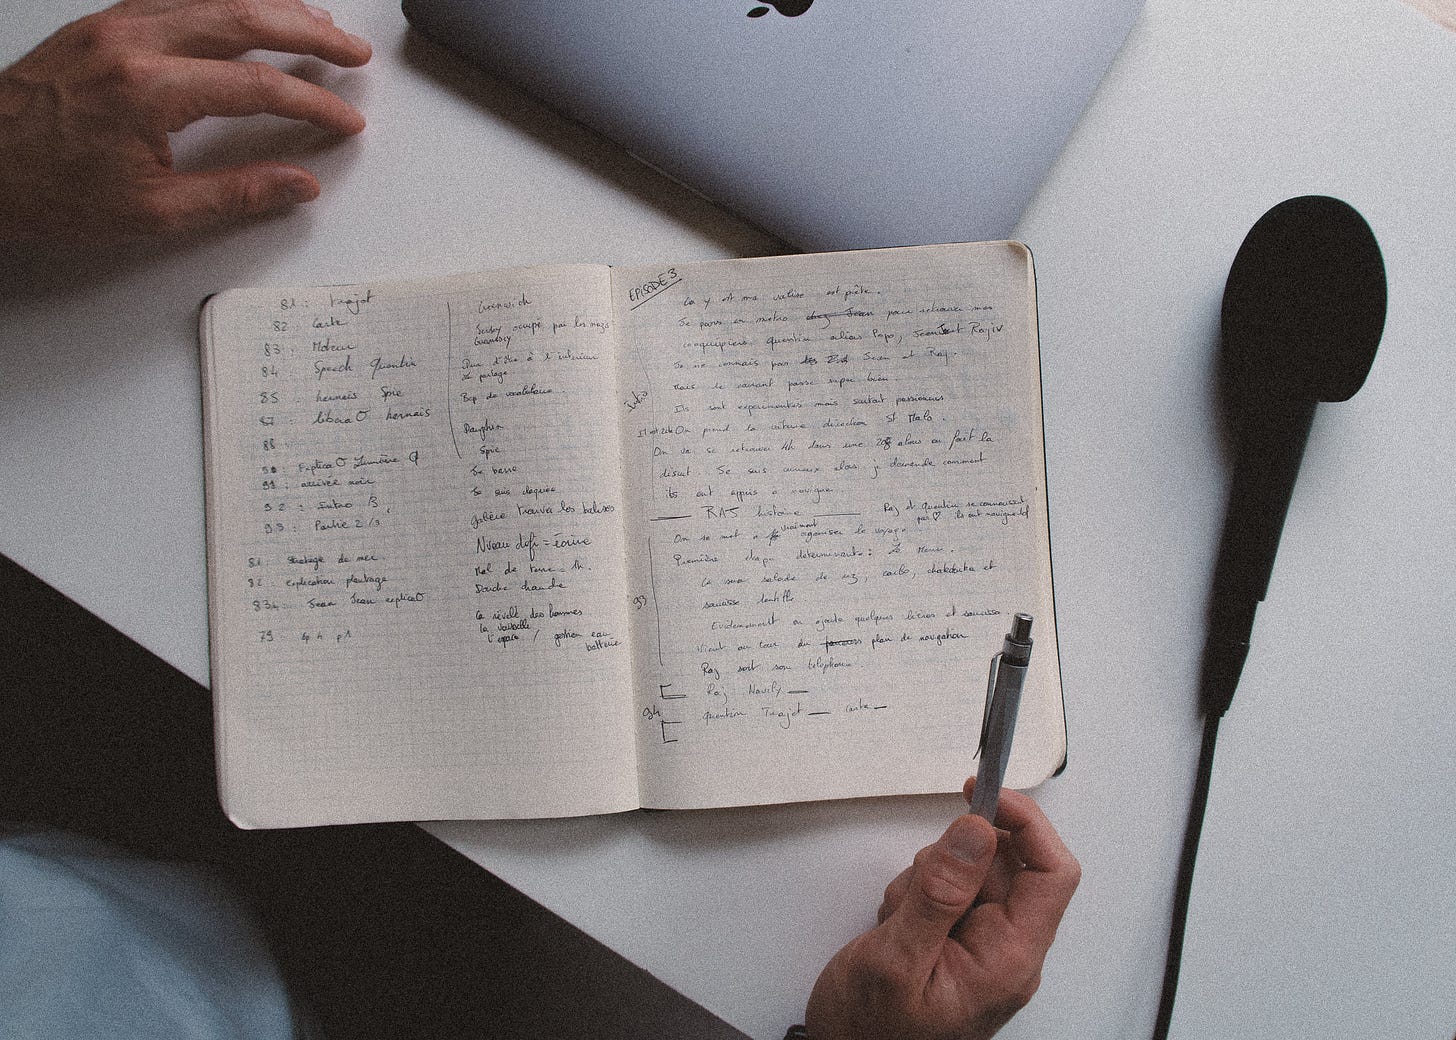 81 : trajet
82 : Carte
83 : Moteur
84 : Speech Quentin
85 : hernais Spie
87 : libera hernais
88
90 : Explica Lumière
91 : arrivée noir
92 : Intro 3
93 : Partie 2/3
81 : Stratage de mer
82 : explication plantage
834 : Jean Jean explica
79 : ep 4 p1
Greenwich
occupé par les nazis
Guernesey
Plus à l'intérieur
Le partage
Bcp de vocabulaire.
Dauphin
Spie
Se barre
Je suis claquée
galère trouver les balises
Niveau défi = écrire
Mal de terre 1h.
Douche chaude
Ça révèle des hommes
la vaisselle
l'espace / gestion eau
batterie
EPISODE 3
Ça y est ma valise est prête.
Je pars en metro chez Jean pour retrouver mes
coequipiers quentin alias Papo, Jean et Rajiv
Je ne connais pas Jean et Raj.
Mais le courant passe super bien.
Intro
Ils sont expérimentés mais surtout passionnés
On prend la voiture direction St Malo.
On va se retrouver 4h dans une 208 alors on fait la
discut. Je suis curieux alors je demande comment
ils ont appris à naviguer
RAJ histoire
Raj et quentin se connaissent
par ils ont navigué
On se met à vraiment organiser le voyage.
Première étape déterminante : Le Menu.
93
Ça sera salade de riz, carbo, chakchuka et
saucisse lentille
Evidemment on ajoute quelques bières et saucisse
Vient au tour du plan de navigation
Raj sort son telephone.
Raj Navily
94
quentin Trajet carte